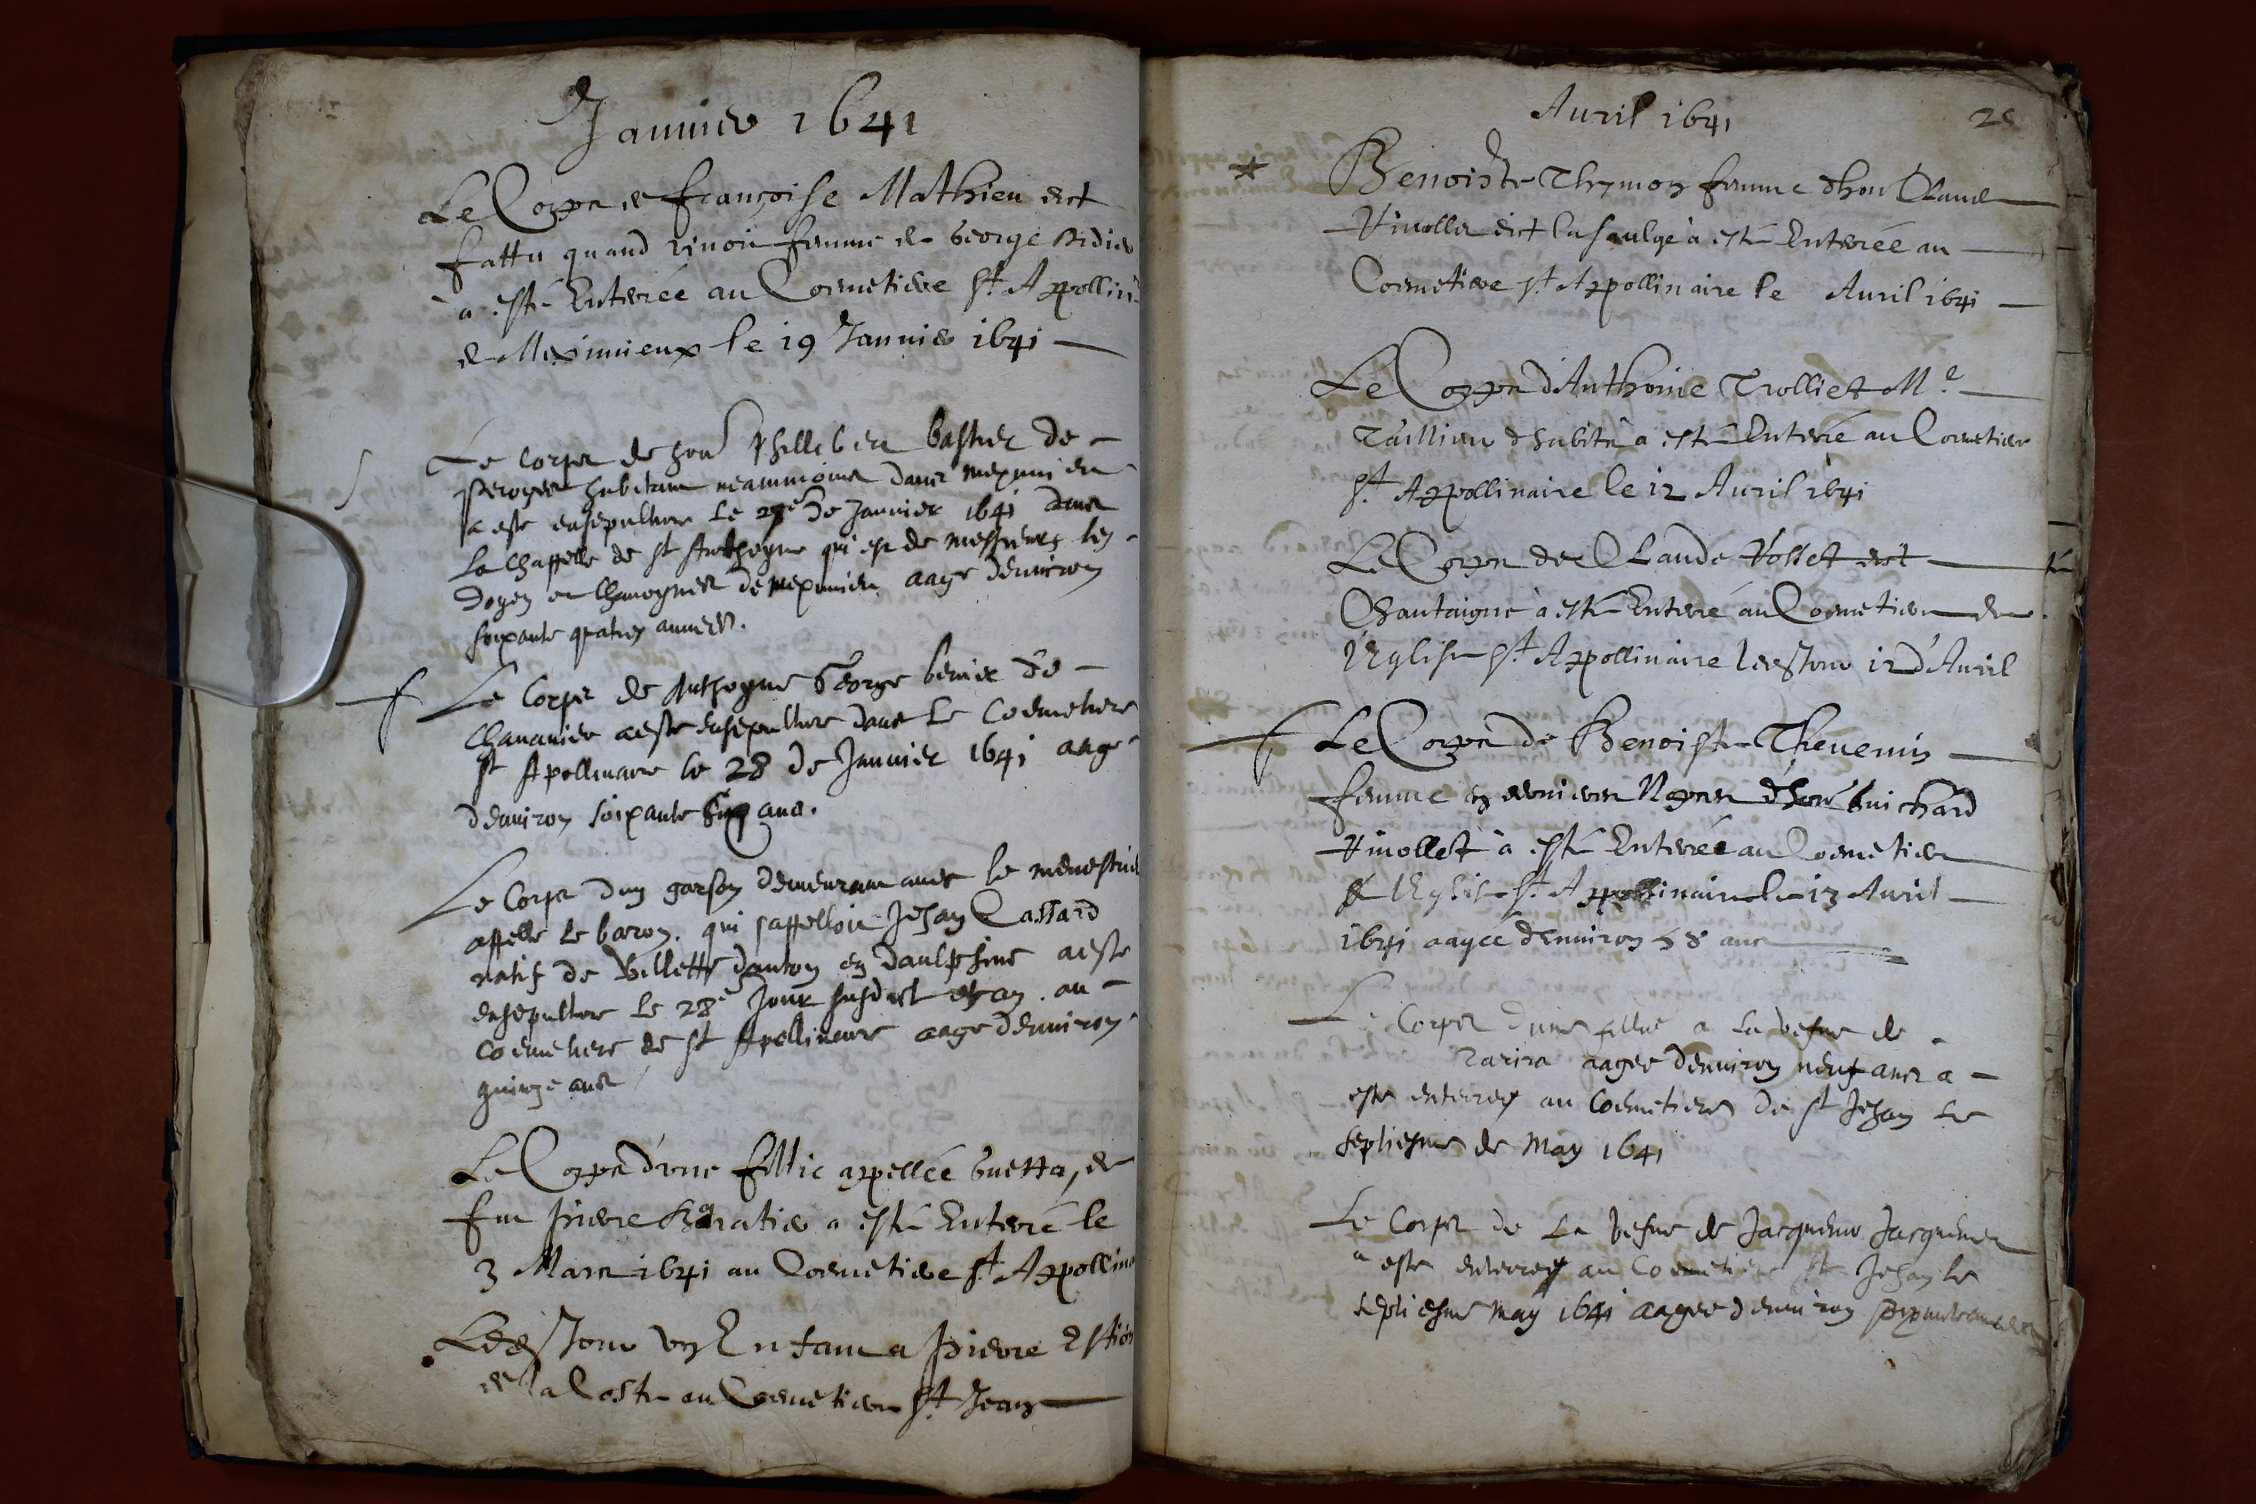 Januier 1641
Le Corps de françoise Mathieu dict
fattu quand viuoit femme de George
a esté Enterrée au Coemetiere St Appollin
de Meximieux le 19 Januier 1641
Le corps de hon phillibert bastier de
peroges habitant neammoins dans meximieu
a este ensepulture le 27e de Januier 1641 dans
la chappelle de st Anthoyne qui est de messieurs les
doyen et Chanoynes de meximieu aage denuiron
soixante quatre annees.
Le Corps de Anthoyne George bernier de
Chananier a este ensepulture dans le Coemetiere
st Apollinaire le 28 de Januier 1641 aage
denuiron soixante cinq ans.
Le Corps dun garson demeurant auec le menestrier
appelle le baron. qui sappelloit Jehan Cassard
natif de Villette danton en daulphine a este
ensepulture le 28e Jour susdict et an. au
Coemetiere de st Apollinaire aage denuiron
quinze ans
Le Corps d'une fillie appellée Guetta, de
feu pierre a esté Enterré le
3 Mars 1641 au Coemetiere St Appollina
Led Jour vn Enfant a pierre
de la Coste au Coemetiere St Jean
Auril 1641
Benoiste Thymon femme d'hon Claude
Viuollet dict la saulge a esté Enterrée au
Coemetiere St Appollinaire le Auril 1641
Le Corps d'Anthoine Trolliet Me
Taillieur d'habits a esté Enterré au Coemetiere
St Appollinaire le 12 Auril 1641
Le Corps de Claude Vosset dict
Chantaigne a esté Enterré au Coemetiere de
l'Eglise St Appollinaire led Jour 12 d'Auril
Le Corps de Benoiste Theuenin
femme en dernieres Nopces d'hon Guichard
Viuollet a esté Enterrée au Coemetiere
de l'Eglise St Appollinaire le 13 Auril
1641 aagée d'enuiron 58 ans
Le Corps dune fillie a la vefue de
aagee denuiron neuf ans a
este enterree au Coemetiere de st Jehan le
septiesme de May 1641
Le Corps de la vefue de Jacqueme
a este enterree au Coemetiere st Jehan le
septiesme may 1641 aagee denuiron